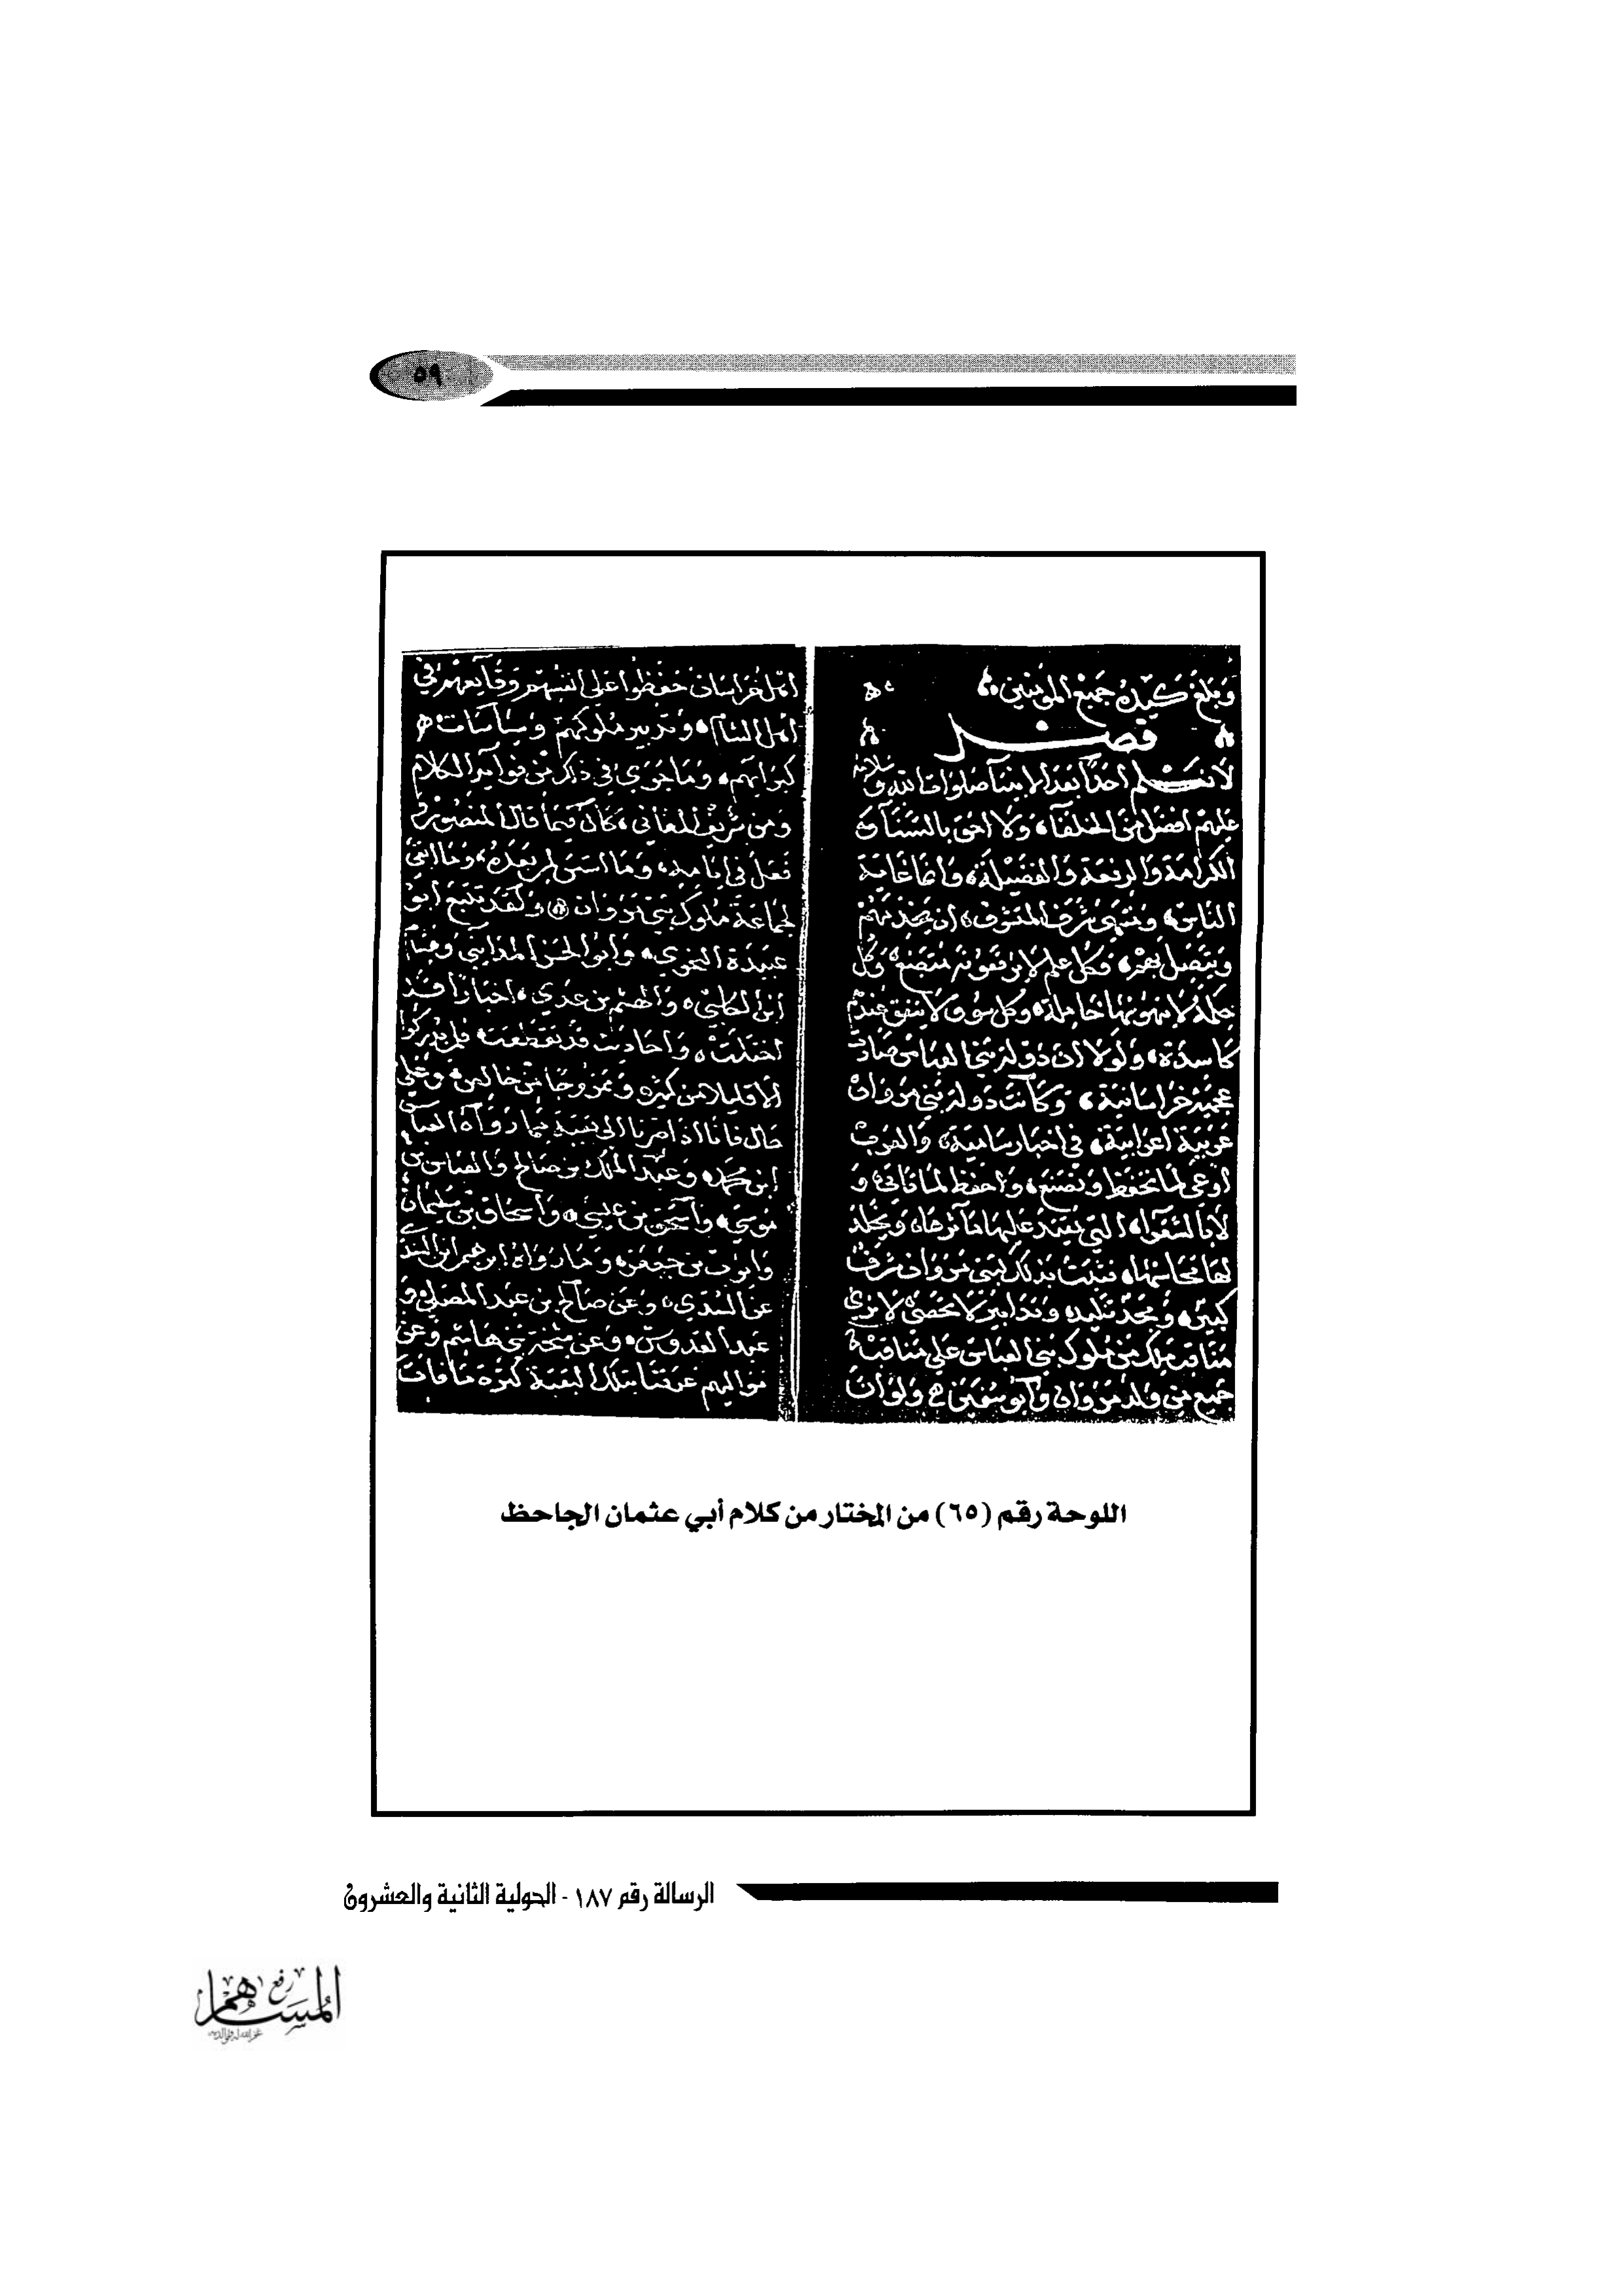 ٥٩
وبلغ كيده جميع المؤمنين
فصل
لا نعلم أحدا بعد الأنبيآ صلوات الله و سلامه
عليهم افضل من الخلفآ ولا احق بالسنآ و
الكرامة والرفعة والفضيلة وانما غاية
الناس ومنتهى شرف المتشرف ان يخدمهم
ويتصل بهم فكل علم لا يرفعونه متضع وكل
حكمة لا ينوهونها خاملة وكل سوق لا تنفق عندهم
كاسدة ولولا ان دولة بني العباس صارت
عجمية خراسانية وكانت دولة بني مروان
عربية اعرابية في اخبار سامية والعرب
أوعى لما تحفظ وتصنع واحفظ لما تأتي و
لها الشعرآ التي تقيد عليها مآثرها وتخلد
لها محاسنها فثبتت بذلك لبني مروان شرف
كبير ومجد تليد وتدابير لا تحصى لا نرى
مناقب ملك من ملوك بني العباس على مناقب
جميع من ولد مروان وابو سفين ولو ان
أهل خراسان حفظوا على انفسهم وقايعهم في
اهل الشام وتدبير ملوكهم وسياسات
كبرايهم وما جرى في ذلك من فوايد الكلام
ومن شريف المعاني كان فيما قال المنصور و
فعل في ايامه وما اسس لمن بعده وما ابقى
لجماعة ملوك بني مروان ولقد تتبع ابو
عبيدة النحوي وابو الحسن المدايني وهشام
ابن الكلبي والهيثم بن عدي اخبارا قد
اختلت واحاديث قد تقطعت فلم يدركوا
الا قليلا من كثير وممزوجا من خالص وعلى
حال فانا اذا صرنا الى بقية ما رواه العباس
ابن محمد وعبد الملك بن صالح والعباس بن
موسى واسحق بن عيسى واسحاق بن سليمان
وايوب بن جعفر وما رواه ابرهيم ابن السندي
عن السندي وعن صالح بن عبد المصلى و
عبد القدوس وعن مشيخة بني هاشم وعن
مواليهم عرفنا بتلك البقية كثرة ما فات
اللوحة رقم (٦٥) من المختار من كلام أبي عثمان الجاحظ
الرسالة رقم ١٨٧ - الحولية الثانية والعشرون
رفع
المساهم
غفر الله له ولوالديه